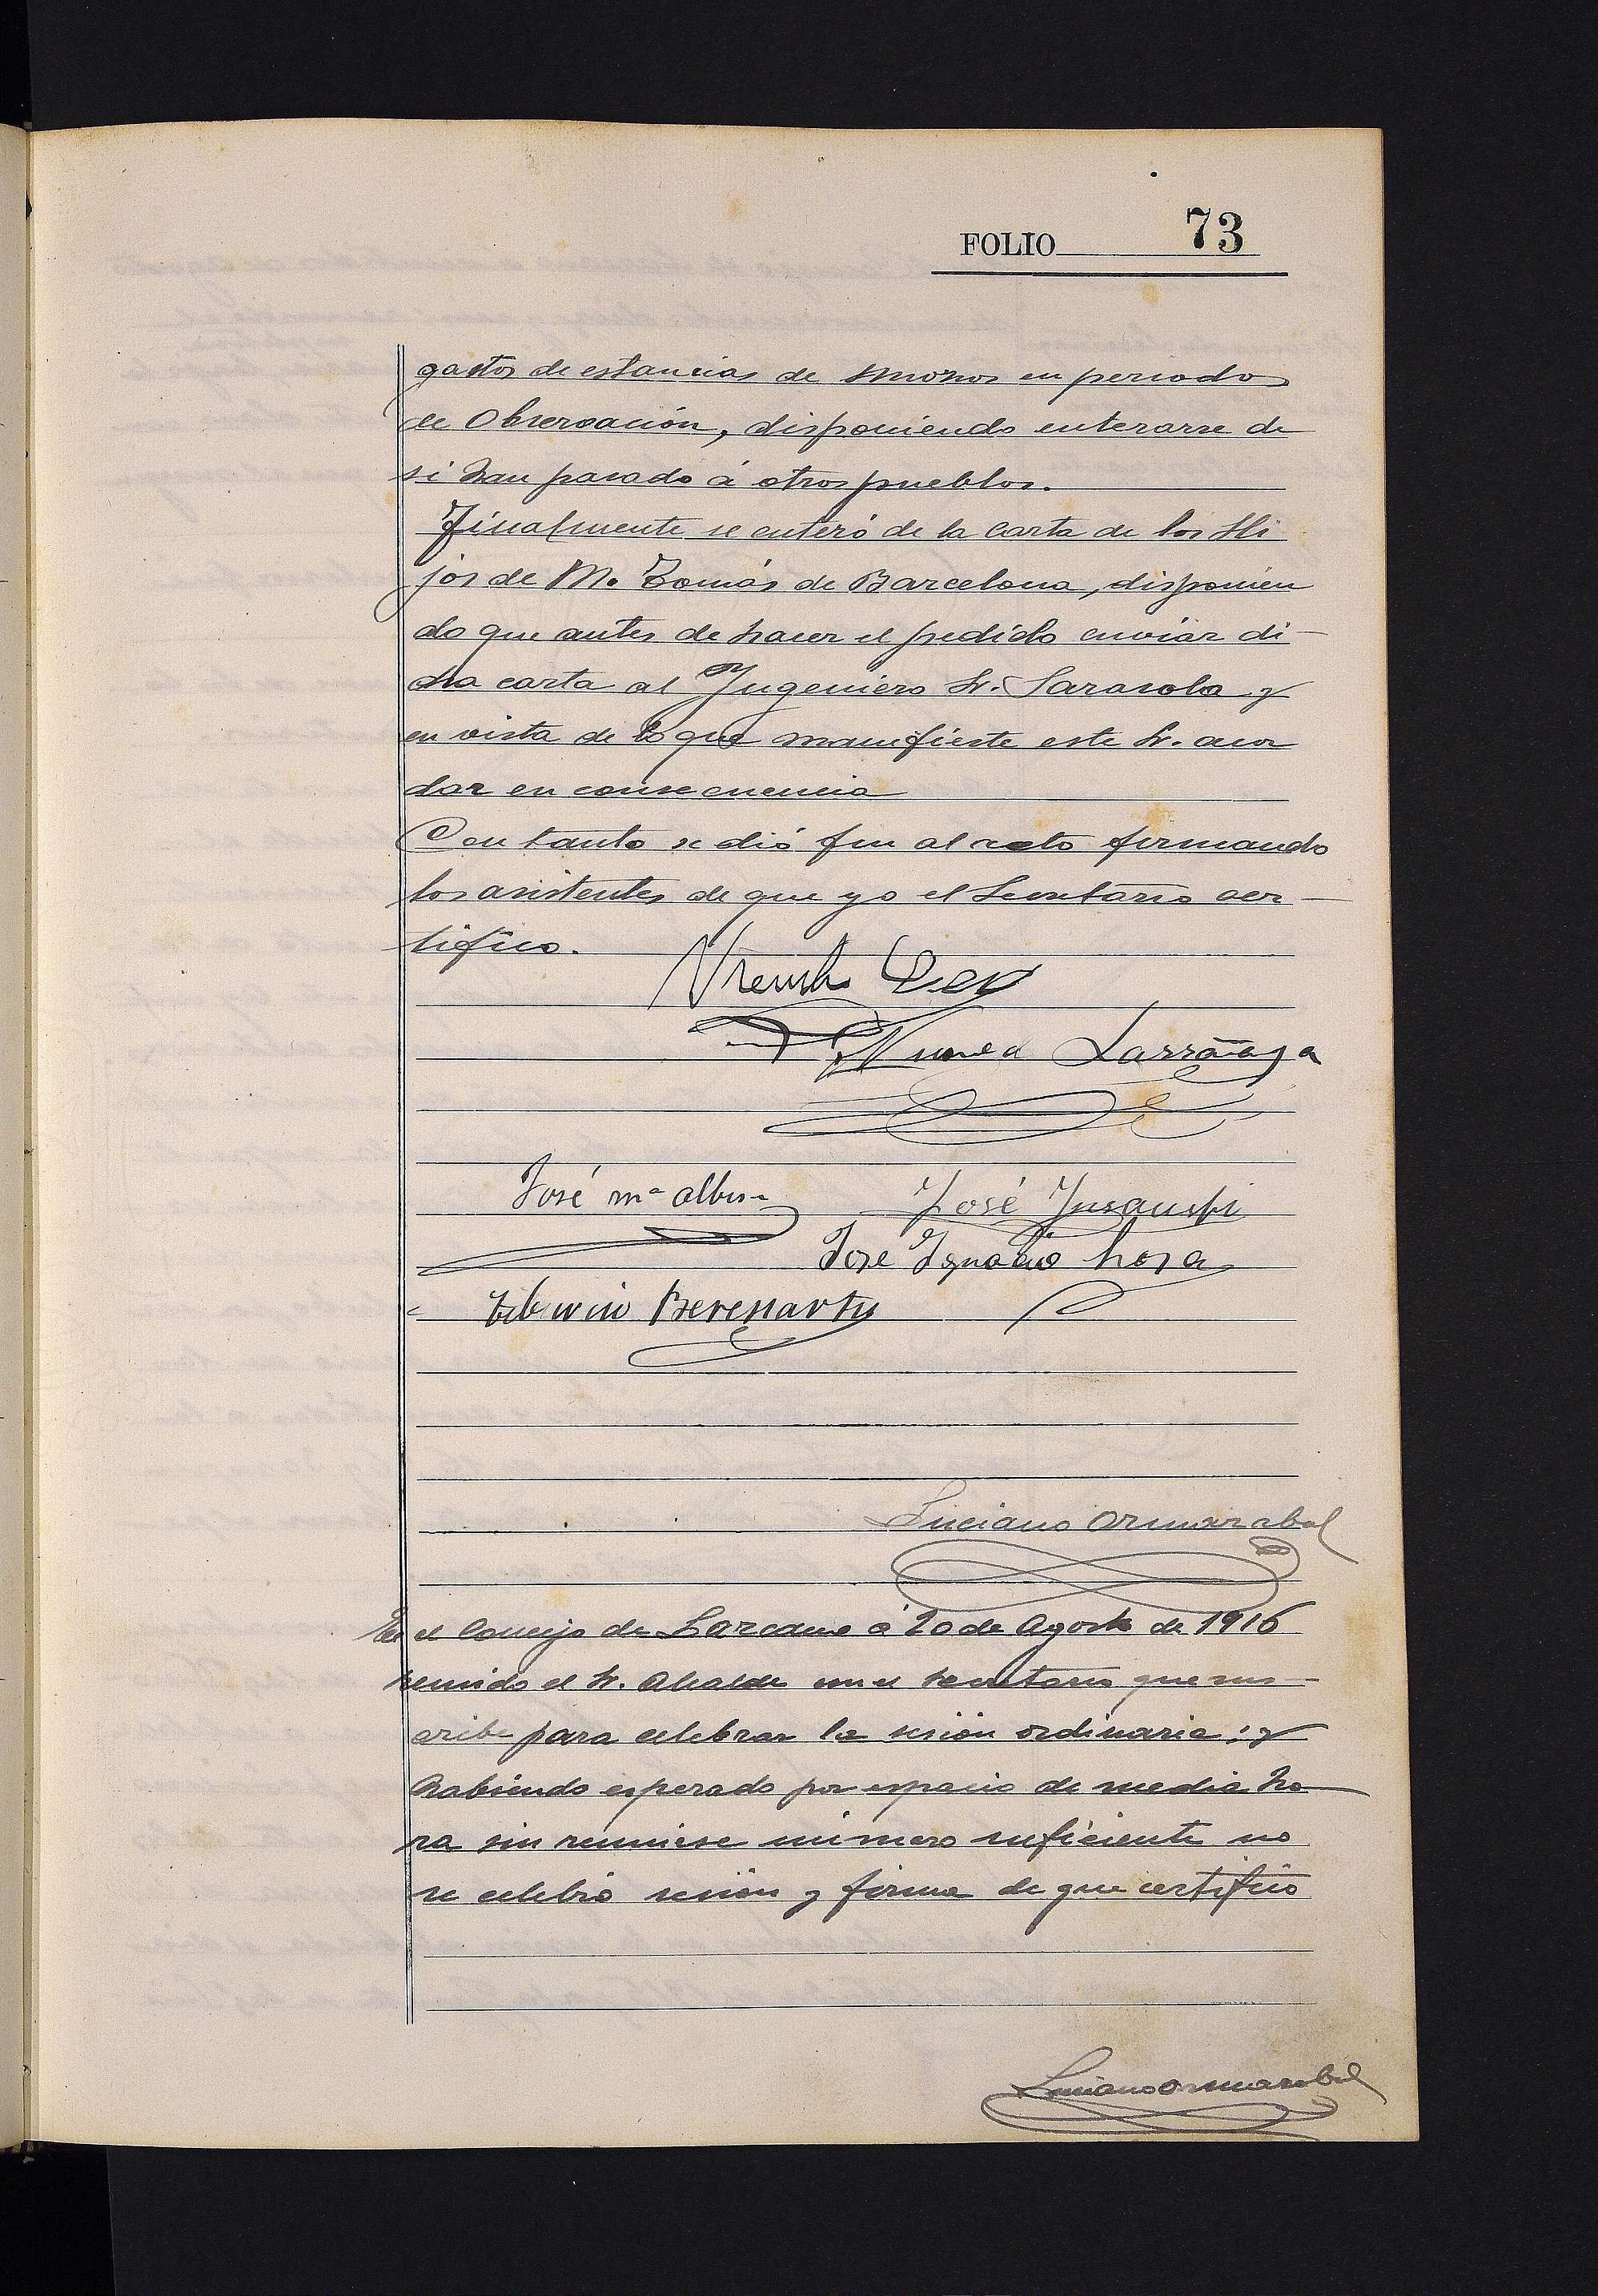 FOLIO 73
gastos de estancias de mozos en periodo
de Observación, disponiendo enterarse de
si han pasado á otros pueblos.
Finalmente se enteró de la carta de los Hi
jos de M. Tomás de Barcelona, disponien
do que antes de hacer el pedido enviar di-
cha carta al Ingeniero Sr. Sarasola y
en vista de lo que manifieste este Sr. acor
dar en consecuencia
Con tanto se dió fin al acto firmando
los asistentes de que yo el Secretario cer-
tifico.
Larrañaga
José Mª Albisu
José Insausti
José Ignacio
Berasartu
Luciano Ormazabal
En el Concejo de Lazcano á 20 de Agosto de 1916
reunido el Sr. Alcalde con el secretario que sus-
cribe para celebrar la sesión ordinaria; y
habiendo esperado por espacio de media ho
ra sin reunirse número suficiente no
se celebró sesión y firma de que certifico
Luciano Ormazabal